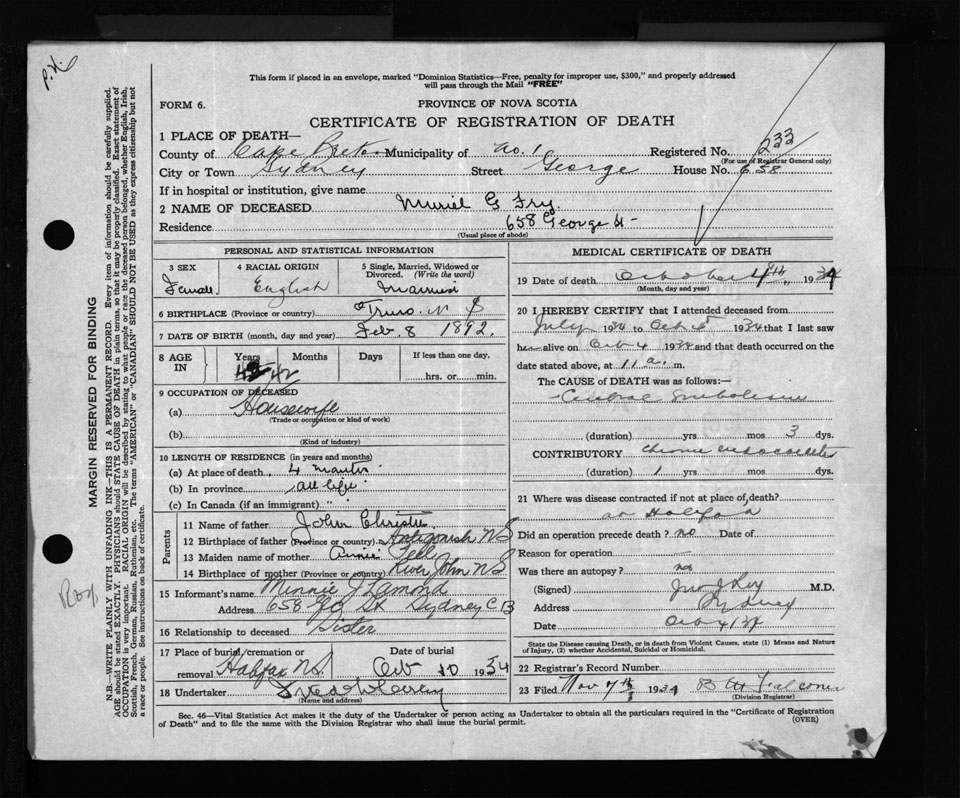 P.H.
This form if placed in an envelope, marked "Dominion Statistics—Free, penalty for improper use, $300," and properly addressed
will pass through the Mail "FREE"
FORM 6.
PROVINCE OF NOVA SCOTIA
CERTIFICATE OF REGISTRATION OF DEATH
1 PLACE OF DEATH—
County of Cape Breton Municipality of No. 1 Registered No. 233
(For use of Registrar General only)
City or Town Sydney Street George House No. 658
If in hospital or institution, give name
2 NAME OF DECEASED Muriel G Fry
Residence 658 George St
(Usual place of abode)
PERSONAL AND STATISTICAL INFORMATION
3 SEX
Female
4 RACIAL ORIGIN
English
5 Single, Married, Widowed or
Divorced. (Write the word)
6 BIRTHPLACE (Province or country) Truro N S
7 DATE OF BIRTH (month, day and year) Feb. 8 1892.
8 AGE IN
Years Months Days If less than one day,
42
hrs. or min.
9 OCCUPATION OF DECEASED
(a) Housewife
(Trade or occupation or kind of work)
(b)
(Kind of industry)
10 LENGTH OF RESIDENCE (in years and months)
(a) At place of death 4 months
(b) In province all life
(c) In Canada (if an immigrant) " "
Parents
11 Name of father John Christie
12 Birthplace of father (Province or country) Antigonish NS
13 Maiden name of mother Annie
14 Birthplace of mother (Province or country) River John NS
15 Informant's name Minnie J Lamond
Address 658 Geo St Sydney C B
16 Relationship to deceased Sister
17 Place of burial, cremation or
removal Halifax NS
Date of burial
Oct 10 1934
18 Undertaker
(Name and address)
MEDICAL CERTIFICATE OF DEATH
19 Date of death October 4th, 1934
(Month, day and year)
20 I HEREBY CERTIFY that I attended deceased from
July 1934 to Oct 1934 that I last saw
h alive on Oct 4 1934 and that death occurred on the
date stated above, at 11 a. m.
The CAUSE of DEATH was as follows:—
Cerebral Embolism
(duration) yrs mos 3 dys.
CONTRIBUTORY Chronic endocarditis
(duration) 1 yrs mos dys.
21 Where was disease contracted if not at place of death?
at Halifax
Did an operation precede death? no Date of
Reason for operation —
Was there an autopsy? no
(Signed) M.D.
Address Sydney
Date Oct 4/34
State the Disease causing Death, or in death from Violent Causes, state (1) Means and Nature
of Injury, (2) whether Accidental, Suicidal or Homicidal.
22 Registrar's Record Number
23 Filed Nov 7th 1934 Falconer
(Division Registrar)
Sec. 46—Vital Statistics Act makes it the duty of the Undertaker or person acting as Undertaker to obtain all the particulars required in the "Certificate of Registration
of Death" and to file the same with the Division Registrar who shall issue the burial permit.
(OVER)
MARGIN RESERVED FOR BINDING
N.B.—WRITE PLAINLY WITH UNFADING INK—THIS IS A PERMANENT RECORD. Every item of information should be carefully supplied.
AGE should be stated EXACTLY. PHYSICIANS should STATE CAUSE OF DEATH in plain terms, so that it may be properly classified. Exact statement of
OCCUPATION is very important. RACIAL ORIGIN will be described by stating to what people or race the deceased person belonged, whether English, Irish,
Scottish, French, German, Russian, Ruthenian, etc. The terms "AMERICAN" or "CANADIAN" SHOULD NOT BE USED as they express citizenship but not
a race or people. See instructions on back of certificate.